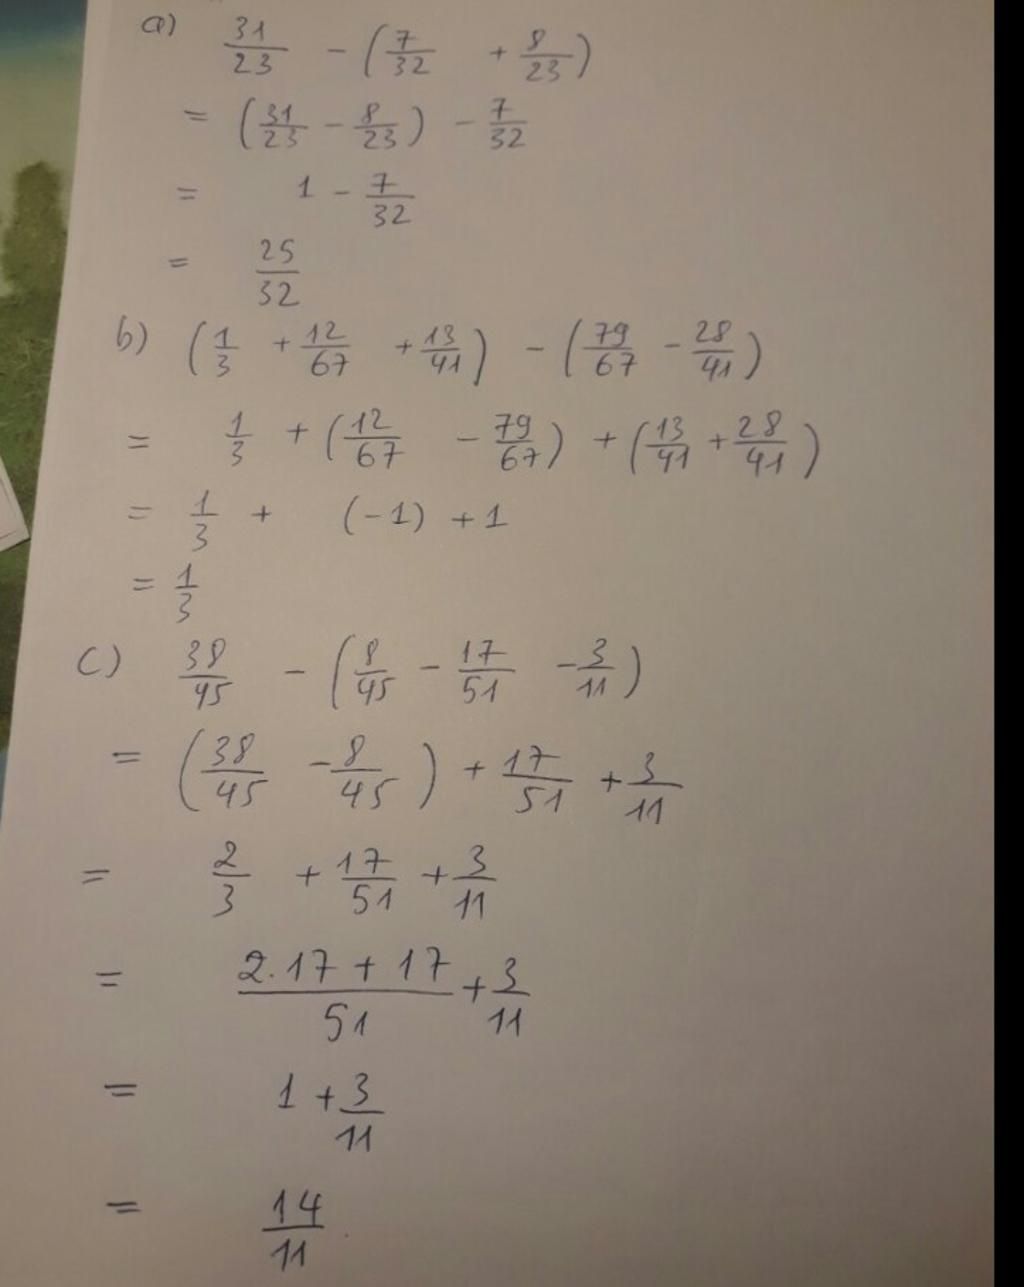 a) 31/23 - (7/32 + 8/23)
= (31/23 - 8/23) - 7/32
= 1 - 7/32
= 25/32
b) (1/3 + 12/67 + 13/41) - (79/67 - 28/41)
= 1/3 + (12/67 - 79/67) + (13/41 + 28/41)
= 1/3 + (-1) + 1
= 1/3
c) 38/45 - (8/45 - 17/51 - 3/11)
= (38/45 - 8/45) + 17/51 + 3/11
= 2/3 + 17/51 + 3/11
= (2.17 + 17)/51 + 3/11
= 1 + 3/11
= 14/11